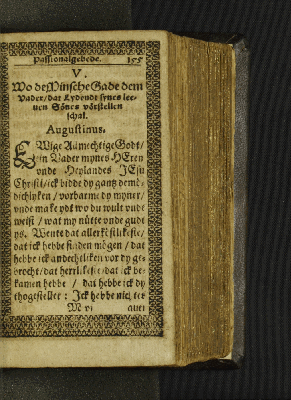 Passionalgebede. 155
V.
Wo de Minsche Gade dem
Vader / dat Lydendt synes lee-
uen Sönes vörstellen
schal.
Augustinus.
EWige Allmechtige Godt /
ein Vader mynes HEren
vnde Heylandes JEsu
Christi / ick bidde dy gantz demö-
dichlyken / vorbarme dy myner /
vnde make ydt wo du wult vnde
weist / wat my nütte vnde gudt
ys. Wente dat allerköstlikeste /
dat ick hebbe finden mögen / dat
hebbe ick andechtliken vor dy ge-
brocht / dat herrlikeste dat ick be-
kamen hebbe / dat hebbe ick dy
thogestellet : Ick hebbe nichtes
M v
auer